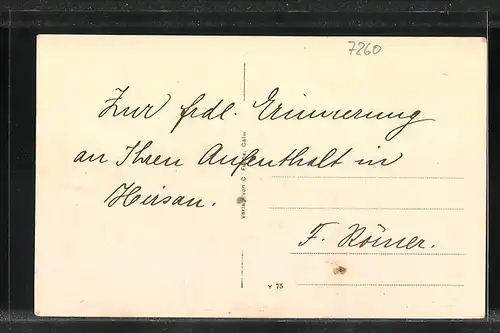 7260
Zur frdl. Erinnerung
an Ihren Aufenthalt in
Hirsau.
F. Römer.
Verlag von C. Calw
Y 75